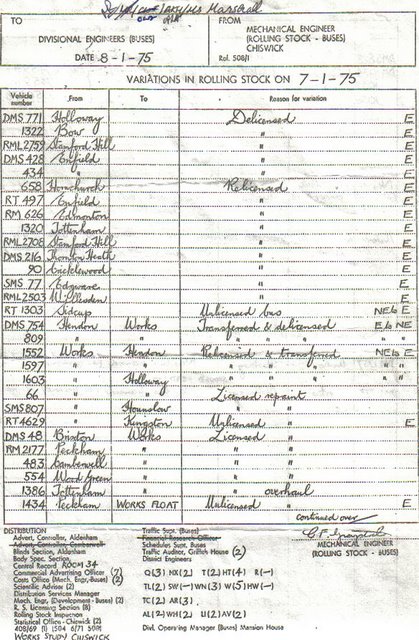 Marshall
TO
FROM
DIVISIONAL ENGINEERS (BUSES)
MECHANICAL ENGINEER
(ROLLING STOCK - BUSES)
CHISWICK
DATE 8-1-75
Ref. 508/1
VARIATIONS IN ROLLING STOCK ON 7-1-75
Vehicle number From To Reason for variation
DMS 771 Holloway Delicensed E
1322 Bow " E
RML 2759 Stamford Hill " E
DMS 428 Enfield " E
434 " " E
658 Hornchurch Relicensed E
RT 497 Enfield " E
RM 626 Edmonton " E
1320 Tottenham " E
RML 2708 Stamford Hill " E
DMS 216 Thornton Heath " E
90 Cricklewood " E
SMS 77 Edgware " E
RML 2503 Willesden " E
RT 1303 Sidcup Unlicensed bus NE6 E
DMS 754 Hendon Works Transferred & delicensed E6 NE
809 " " " " " "
1552 Works Hendon Relicensed & transferred NE6 E
1597 " " " " " "
1603 " Holloway " " " "
66 " " Licensed repaint
SMS 807 " Hounslow "
RT 4629 " Kingston Unlicensed E
DMS 48 Brixton Works Licensed
RM 2177 Peckham " "
483 Camberwell " "
554 Wood Green " "
1386 Tottenham " " overhaul
1434 Peckham WORKS FLOAT Unlicensed E
continued over
DISTRIBUTION
Advert. Controller, Aldenham
Advert. Controller, Camberwell
Blinds Section, Aldenham
Body Spec. Section,
Central Record ROOM 34
Commercial Advertising Officer (7)
Costs Office (Mech. Engr.-Buses) (2)
Scientific Adviser (2)
Distribution Services Manager
Mech. Engr. (Development - Buses) (2)
R. S. Licensing Section (8)
Rolling Stock Inspectors
Statistical Office (2)
WORKS STUDY CHISWICK
Traffic Supt. (Buses)
Financial Research Officer
Schedules Supt. Buses
Traffic Auditor, Griffith House (2)
District Engineers
Q(3) NX(2) T(2) HT(4) R(-)
TL(2) SW(-) WN(3) W(5) HW(-)
TC(2) AR(3)
AL(2) WH(2) U(2) AV(2)
Divl. Operating Manager (Buses) Mansion House
MECHANICAL ENGINEER
(ROLLING STOCK - BUSES)